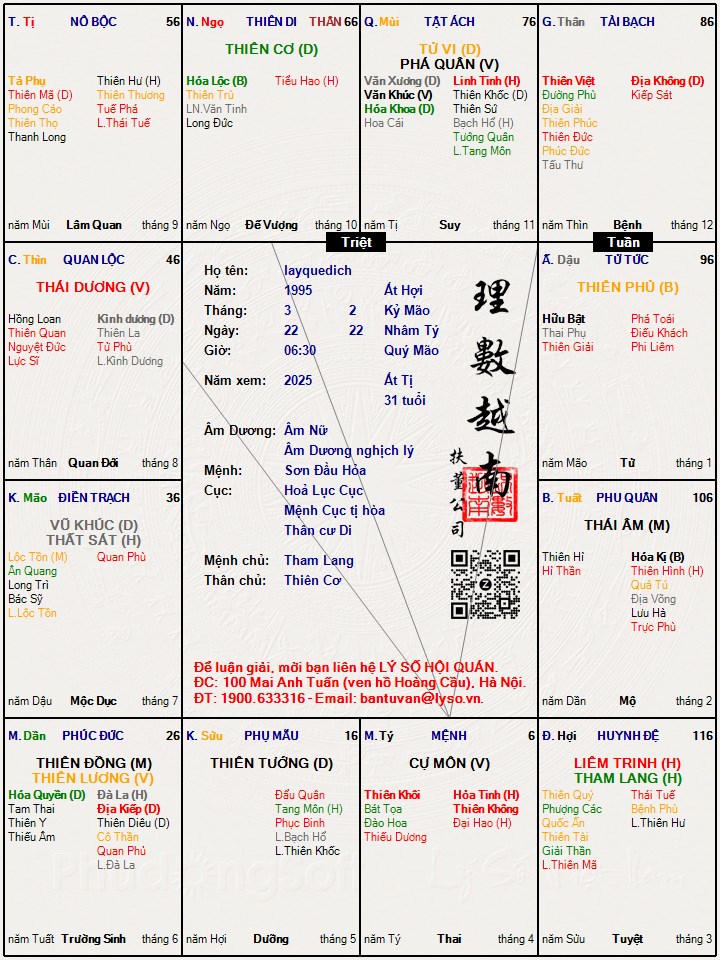 T. Tị NÔ BỘC 56
Tả Phụ Thiên Hư (H)
Thiên Mã (D) Thiên Thương
Phong Cáo Tuế Phá
Thiên Thọ L.Thái Tuế
Thanh Long
năm Mùi Lâm Quan tháng 9
N. Ngọ THIÊN DI THÂN 66
THIÊN CƠ (D)
Hóa Lộc (B) Tiểu Hao (H)
Thiên Trù
LN.Văn Tinh
Long Đức
năm Ngọ Đế Vượng tháng 10
Q. Mùi TẬT ÁCH 76
TỬ VI (D)
PHÁ QUÂN (V)
Văn Xương (D) Linh Tinh (H)
Văn Khúc (V) Thiên Khốc (D)
Hóa Khoa (D) Thiên Sứ
Hoa Cái Bạch Hổ (H)
Tướng Quân
L.Tang Môn
năm Tị Suy tháng 11
G. Thân TÀI BẠCH 86
Thiên Việt Địa Không (D)
Đường Phù Kiếp Sát
Địa Giải
Thiên Phúc
Thiên Đức
Phúc Đức
Tấu Thư
năm Thìn Bệnh tháng 12
Triệt
Tuần
C. Thìn QUAN LỘC 46
THÁI DƯƠNG (V)
Hồng Loan Kình dương (D)
Thiên Quan Thiên La
Nguyệt Đức Tử Phù
Lực Sĩ L.Kình Dương
năm Thân Quan Đới tháng 8
Họ tên: layquedich
Năm: 1995 Ất Hợi
Tháng: 3 2 Kỷ Mão
Ngày: 22 22 Nhâm Tý
Giờ: 06:30 Quý Mão
Năm xem: 2025 Ất Tị
31 tuổi
Âm Dương: Âm Nữ
Âm Dương nghịch lý
Mệnh: Sơn Đầu Hỏa
Cục: Hoả Lục Cục
Mệnh Cục tị hòa
Thân cư Di
Mệnh chủ: Tham Lang
Thân chủ: Thiên Cơ
理數越南
扶董公司
Để luận giải, mời bạn liên hệ LÝ SỐ HỘI QUÁN.
ĐC: 100 Mai Anh Tuấn (ven hồ Hoàng Cầu), Hà Nội.
ĐT: 1900.633316 - Email: bantuvan@lyso.vn.
Ấ. Dậu TỬ TỨC 96
THIÊN PHỦ (B)
Hữu Bật Phá Toái
Thai Phụ Điếu Khách
Thiên Giải Phi Liêm
năm Mão Tử tháng 1
K. Mão ĐIỀN TRẠCH 36
VŨ KHÚC (D)
THẤT SÁT (H)
Lộc Tồn (M) Quan Phù
Ân Quang
Long Trì
Bác Sỹ
L.Lộc Tồn
năm Dậu Mộc Dục tháng 7
B. Tuất PHU QUÂN 106
THÁI ÂM (M)
Thiên Hỉ Hóa Kị (B)
Hỉ Thần Thiên Hình (H)
Quả Tú
Địa Võng
Lưu Hà
Trực Phù
năm Dần Mộ tháng 2
M. Dần PHÚC ĐỨC 26
THIÊN ĐỒNG (M)
THIÊN LƯƠNG (V)
Hóa Quyền (D) Đà La (H)
Tam Thai Địa Kiếp (D)
Thiên Y Thiên Diêu (D)
Thiếu Âm Cô Thần
Quan Phủ
L.Đà La
năm Tuất Trường Sinh tháng 6
K. Sửu PHỤ MẪU 16
THIÊN TƯỚNG (D)
Đẩu Quân
Tang Môn (H)
Phục Binh
L.Bạch Hổ
L.Thiên Khốc
năm Hợi Dưỡng tháng 5
M. Tý MỆNH 6
CỰ MÔN (V)
Thiên Khôi Hỏa Tinh (H)
Bát Tọa Thiên Không
Đào Hoa Đại Hao (H)
Thiếu Dương
năm Tý Thai tháng 4
Đ. Hợi HUYNH ĐỆ 116
LIÊM TRINH (H)
THAM LANG (H)
Thiên Quý Thái Tuế
Phượng Các Bệnh Phù
Quốc Ấn L.Thiên Hư
Thiên Tài
Giải Thần
L.Thiên Mã
năm Sửu Tuyệt tháng 3